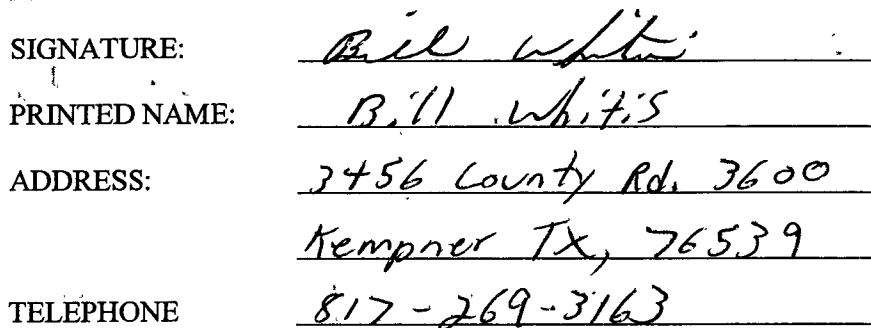 SIGNATURE: Bill Whitis
PRINTED NAME: Bill Whitis
ADDRESS: 3456 County Rd. 3600
Kempner TX, 76539
TELEPHONE 817-269-3163